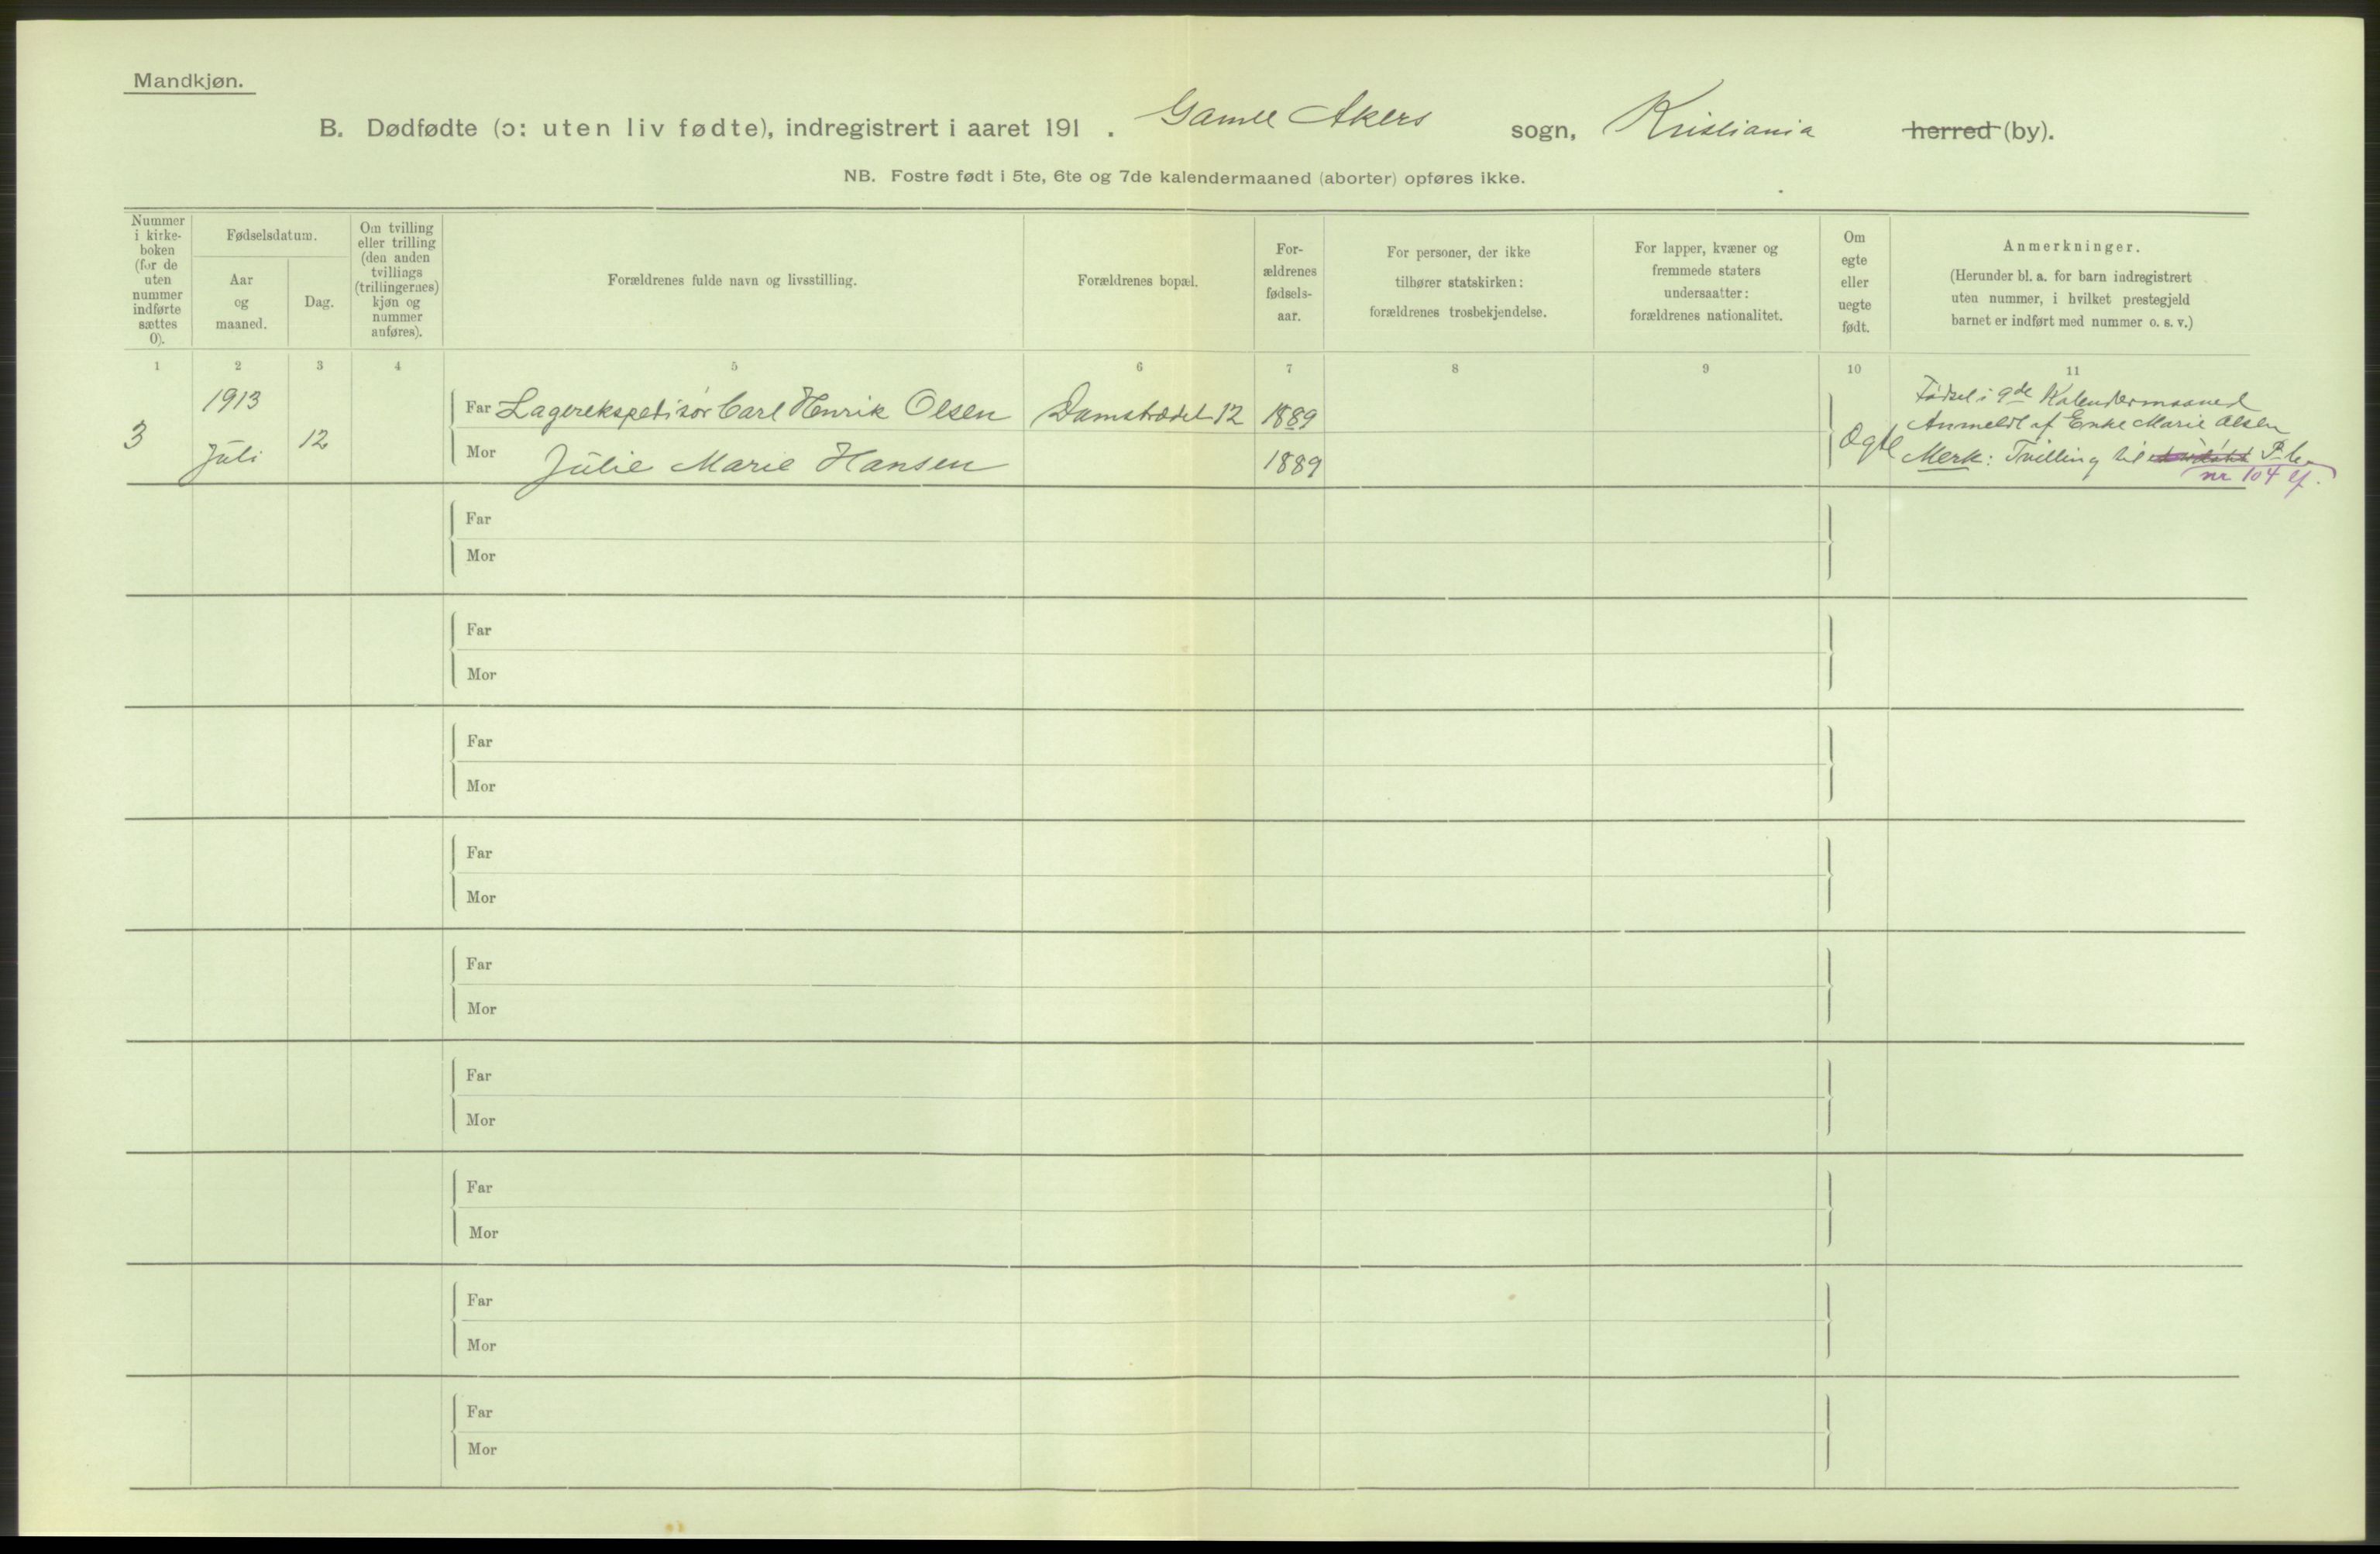 Mandkjøn.
B. Dødfødte (ɔ: uten liv fødte), indregistrert i aaret 191 . Gamle Akers sogn, Kristiania herred (by).
NB. Fostre født i 5te, 6te og 7de kalendermaaned (aborter) opføres ikke.
Nummer
i kirke-
boken
(for de
uten
nummer
indførte
sættes
0).
Fødselsdatum.
Aar
og
maaned.
Dag.
Om tvilling
eller trilling
(den anden
tvillings
(trillingernes)
kjøn og
nummer
anføres).
Forældrenes fulde navn og livsstilling.
Forældrenes bopæl.
For-
ældrenes
fødsels-
aar.
For personer, der ikke
tilhører statskirken:
forældrenes trosbekjendelse.
For lapper, kvæner og
fremmede staters
undersaatter:
forældrenes nationalitet.
Om
egte
eller
uegte
født.
Anmerkninger.
(Herunder bl. a. for barn indregistrert
uten nummer, i hvilket prestegjeld
barnet er indført med nummer o. s. v.)
1 2 3 4 5 6 7 8 9 10 11
3
1913
Juli
12
Far Lagerekspeditør Carl Henrik Olsen
Mor Julie Marie Hansen
Damstrædet 12
1889
1889
Ogte
Fødsel i 9de Kalendermaaned
Anmeldt af Enke Marie Olsen
Merk: Tvilling til
nr 104
Far
Mor
Far
Mor
Far
Mor
Far
Mor
Far
Mor
Far
Mor
Far
Mor
Far
Mor
Far
Mor